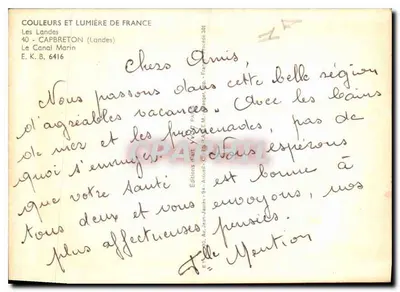 COULEURS ET LUMIÈRE DE FRANCE
Les Landes
40 - CAPBRETON (Landes)
Le Canal Marin
E. K. B. 6416
Chers Amis,
Nous passons dans cette belle région
d'agréables vacances. Avec les bains
de mer et les promenades, pas de
quoi s'ennuyer. Nous espérons
que votre santé est bonne à
tous deux et vous envoyons, nos
plus affectueuses pensées.
Mention